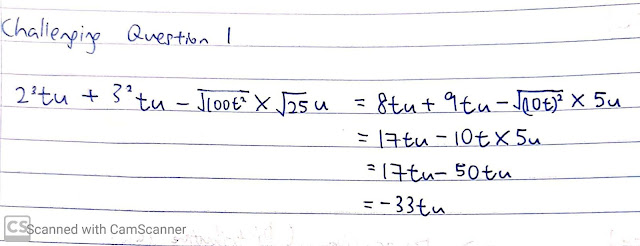 Challenging Question 1
2³tu + 3²tu − √100t² × √25 u = 8tu + 9tu − √(10t)² × 5u
= 17tu − 10t × 5u
= 17tu − 50tu
= −33tu
CS Scanned with CamScanner